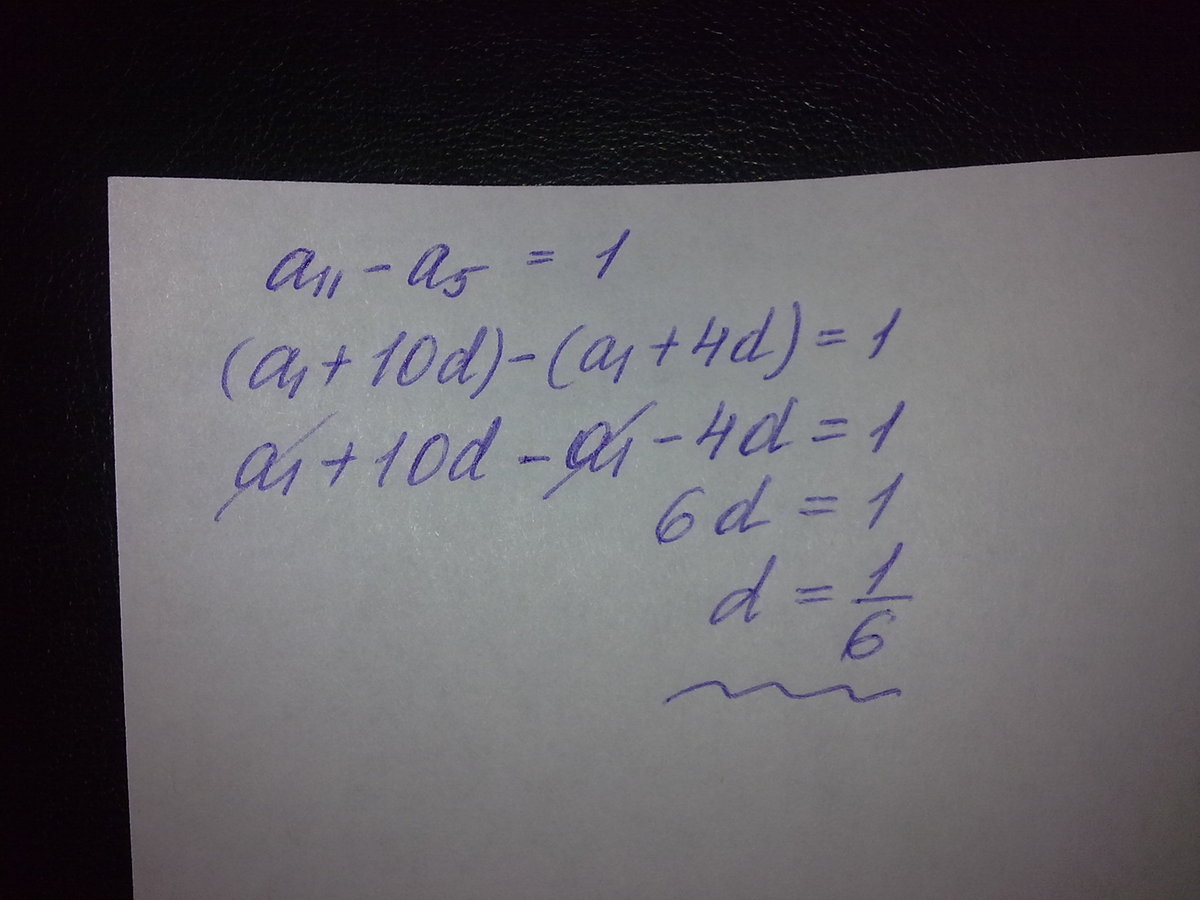 a₁₁ - a₅ = 1
(a₁ + 10d) - (a₁ + 4d) = 1
a₁ + 10d - a₁ - 4d = 1
6d = 1
d = 1/6